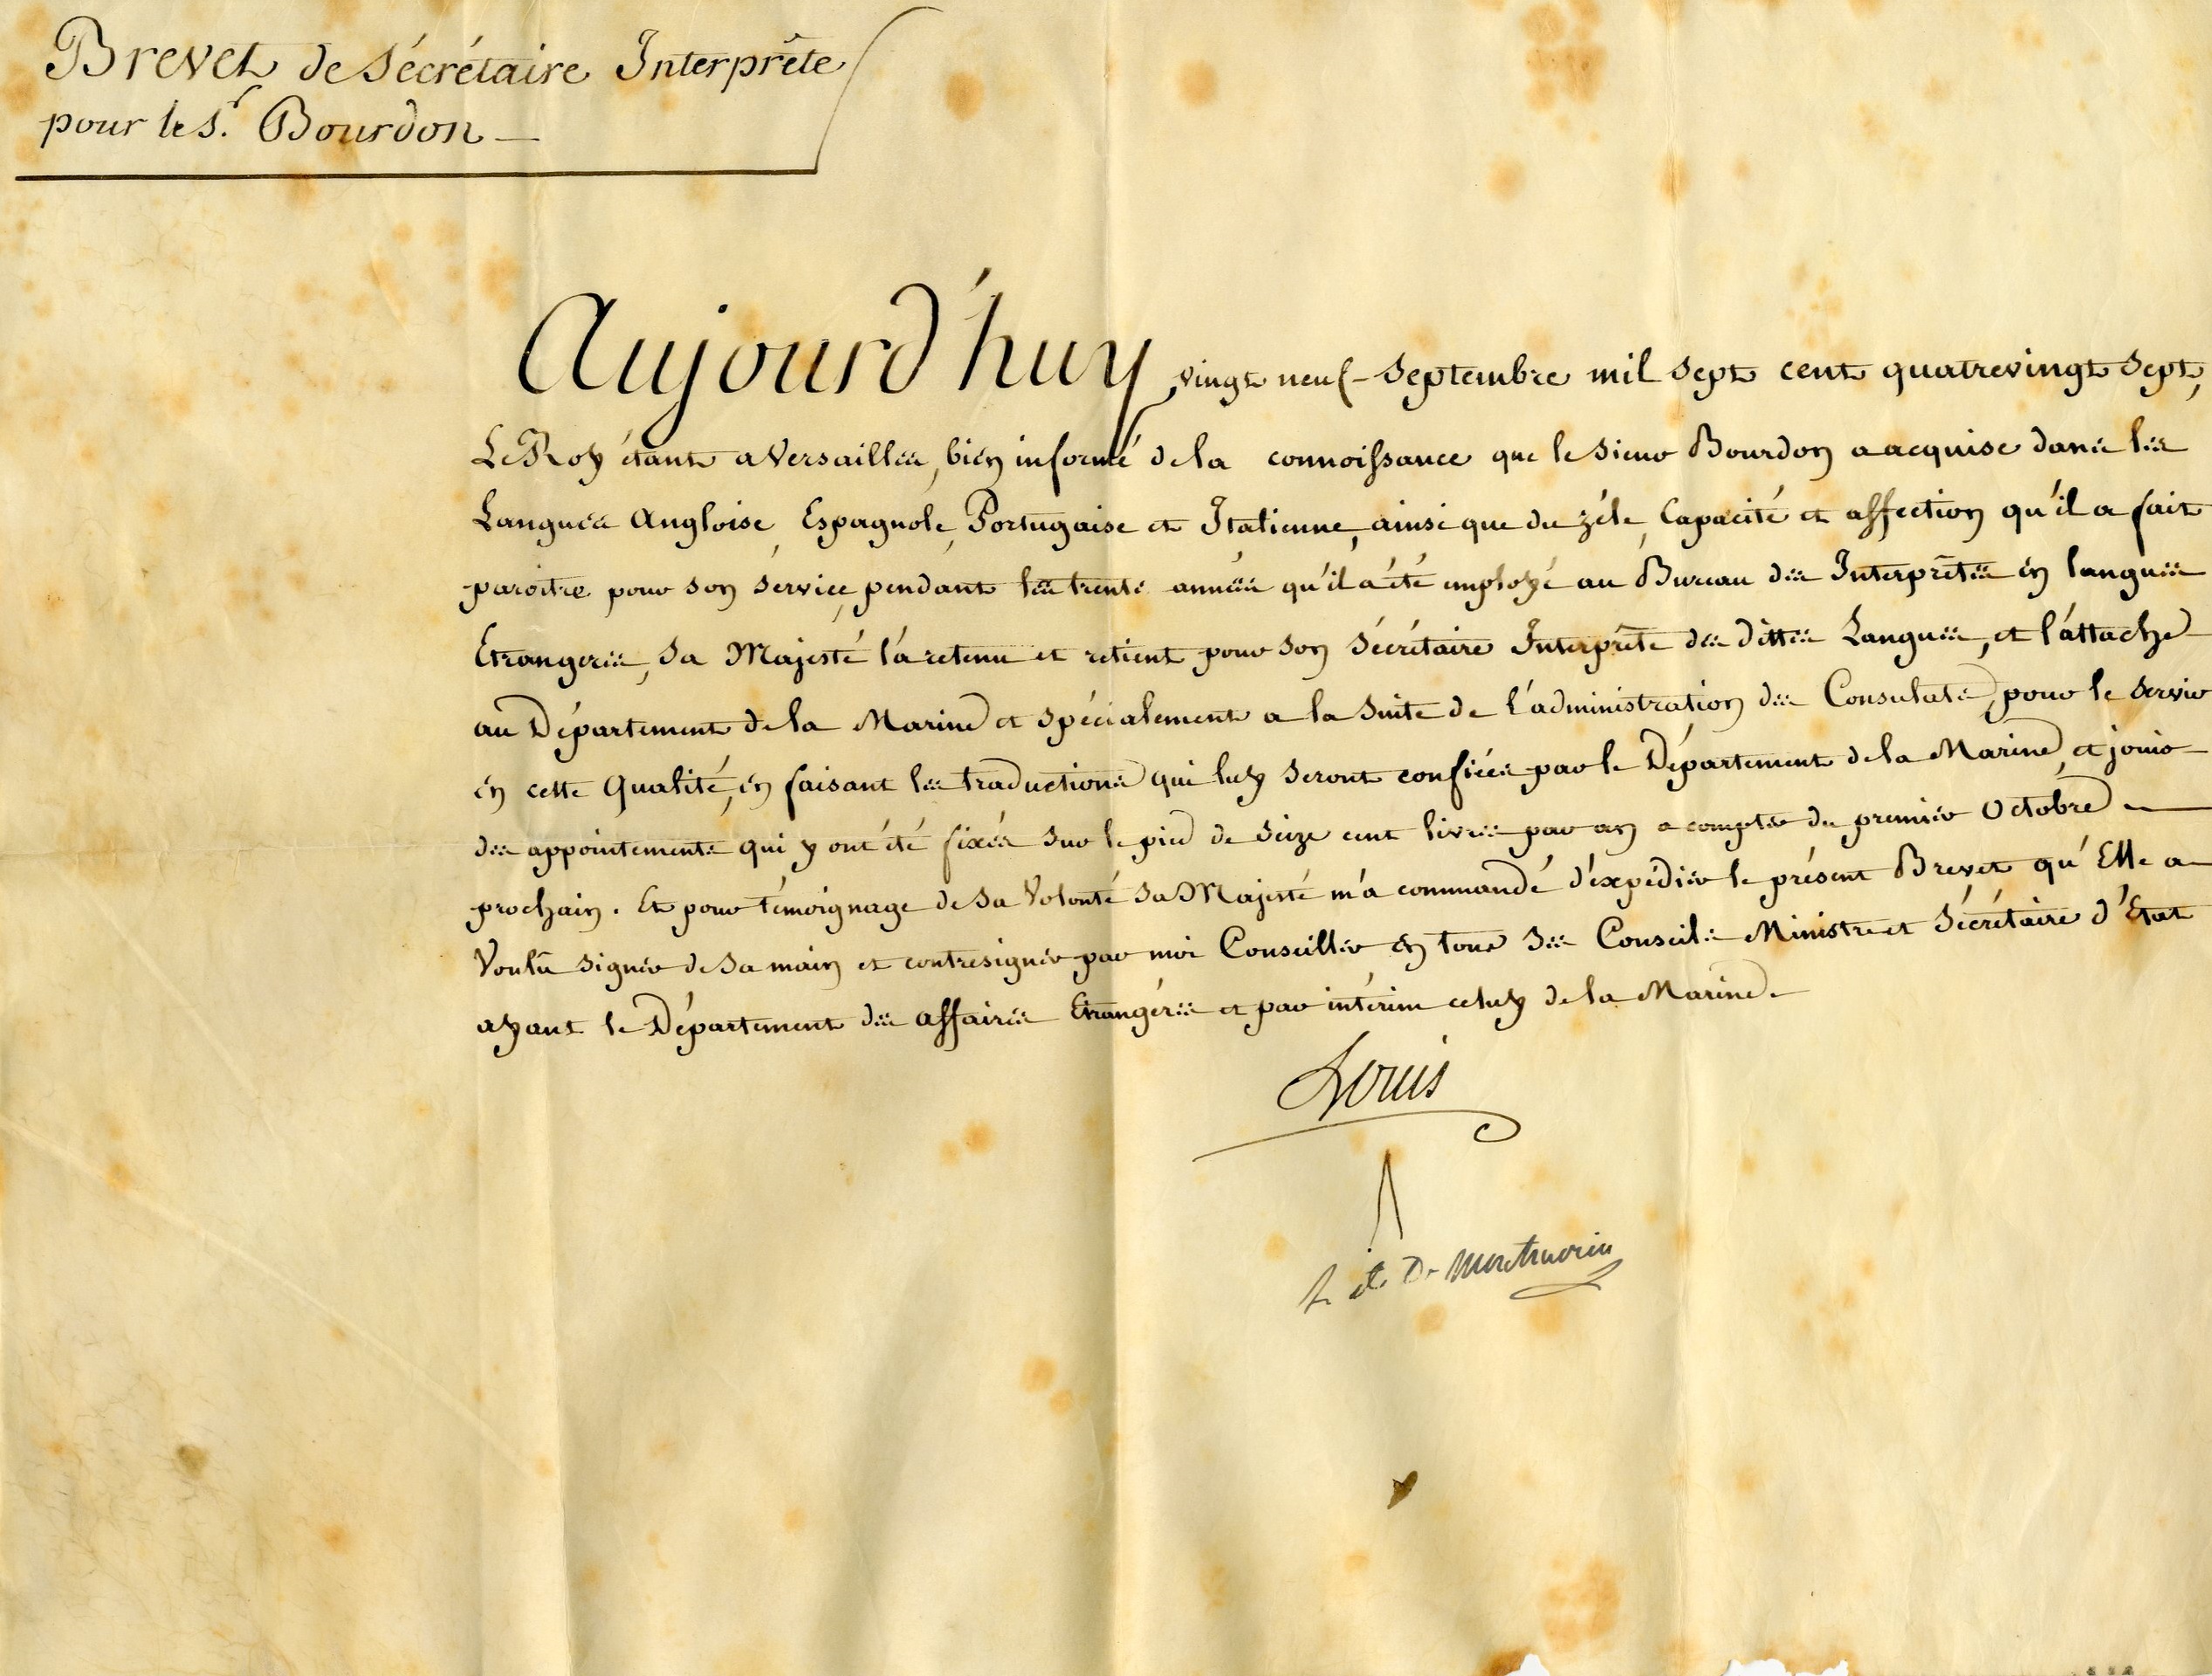 Brevet de Sécrétaire Interprête
pour le S.r Bourdon —
Aujourd'huy vingt neuf - Septembre mil sept cent quatrevingt sept,
Le Roy étant a Versailles, bien informé de la connoissance que le Sieur Bourdon a acquise dans les
Langues Angloise, Espagnole, Portugaise et Italienne, ainsi que du zéle, Capacité et affection qu'il a fait
paroitre pour son service, pendant les trente années qu'il a été employé au Bureau des Interprêtes en langues
Etrangeres, Sa Majesté l'a retenu et retient pour son Sécrétaire Interprête des dittes Langues, et l'attache
au Département de la Marine et spécialement a la Suite de l'administration des Consulats, pour le servir
en cette Qualité, en faisant les traductions qui luy seront confiées par le Département de la Marine, et jouir
des appointements qui y ont été fixés sur le pied de Seize cent livres par an a compter du premier Octobre —
prochain. Et pour témoignage de sa Volonté Sa Majesté m'a commandé d'expédier le présent Brevet qu'Elle a
Voulu signer de Sa main et contresigner par moi Conseiller en tous Ses Conseils Ministre et Sécrétaire d'Etat
ayant le Département des affaires Etrangéres et par intérim celuy de la Marine.
Louis
De Montmorin